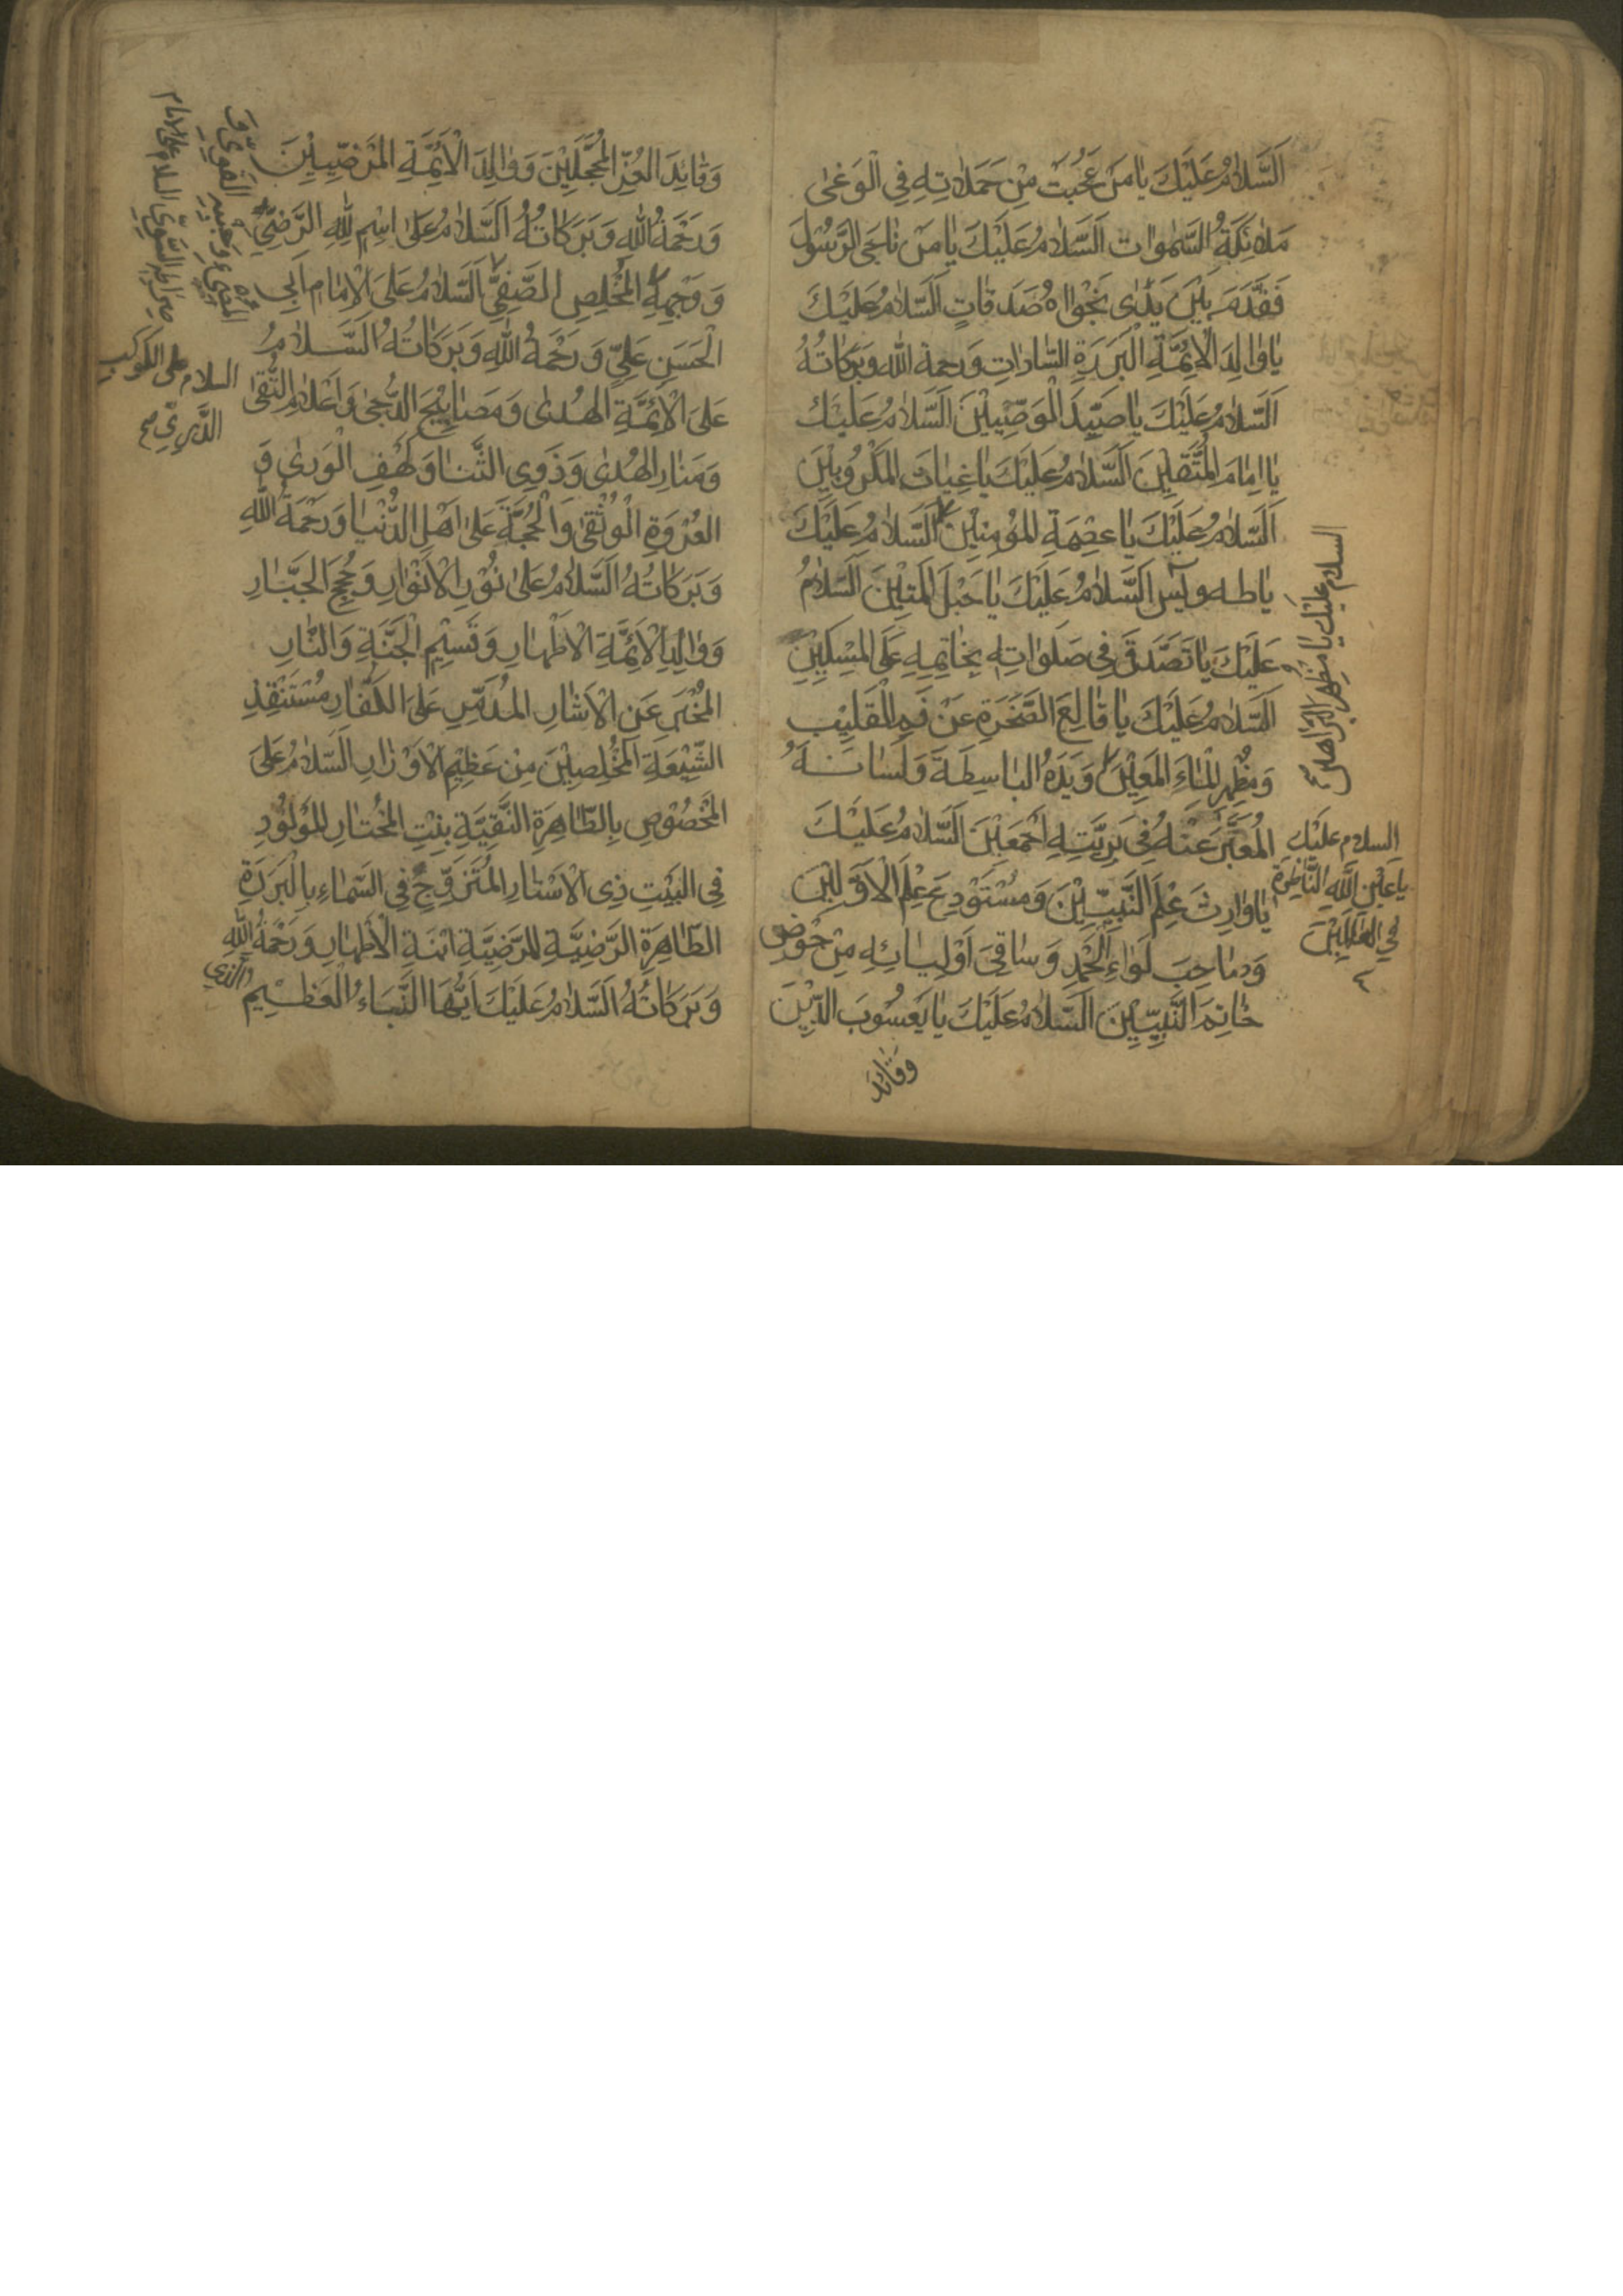 اَلسَّلَامُ عَلَيْكَ يَا مَنْ عَجِبَتْ مِنْ حَمَلَاتِهِ فِي الْوَغٰى
مَلَائِكَةُ السَّمٰوَاتِ اَلسَّلَامُ عَلَيْكَ يَا مَنْ نَاجَى الرَّسُولَ
فَقَدَّمَ بَيْنَ يَدَىْ نَجْوَاهُ صَدَقَاتٍ اَلسَّلَامُ عَلَيْكَ
يَا وَالِدَ الْاَئِمَّةِ الْبَرَرَةِ السَّادَاتِ وَرحمة الله وَبَرَكَاتُهُ
اَلسَّلَامُ عَلَيْكَ يَا سَيِّدَ الْوَصِيِّينَ اَلسَّلَامُ عَلَيْكَ
يَا اِمَامَ الْمُتَّقِينَ اَلسَّلَامُ عَلَيْكَ يَا غِيَاثَ الْمَكْرُوبِينَ
اَلسَّلَامُ عَلَيْكَ يَا عِصْمَةِ الْمُؤْمِنِينَ اَلسَّلَامُ عَلَيْكَ
يَا طه ويٓس اَلسَّلَامُ عَلَيْكَ يَا حَبْلَ الْمَتِينَ اَلسَّلَامُ
عَلَيْكَ يَا تَصَدَّقَ فِي صَلَوَاتِهِ بِخَاتِمِهِ عَلَى الْمِسْكِينِ
اَلسَّلَامُ عَلَيْكَ يَا قَالِعَ الصَّخْرَةِ عَنْ فَمِ الْقَلِيبِ
وَمُظْهِرَ الْمَاءِ الْمَعِينِ وَيَدَهُ الْبَاسِطَةَ وَلِسَانَهُ
الْمُعَبِّرَ عَنْهُ فِي بَرِيَّتِهِ اَجْمَعِينَ اَلسَّلَامُ عَلَيْكَ
يَا وَارِثَ عِلْمِ النَّبِيِّينَ وَمُسْتَوْدِعَ عِلْمِ الْاَوَّلِينَ
وَصَاحِبَ لِوَاءِ الْحَمْدِ وَسَاقِيَ اَوْلِيَائِهِ مِنْ حَوْضِ
خَاتِمَ النَّبِيِّينَ اَلسَّلَامُ عَلَيْكَ يَا يَعْسُوبَ الدِّينَ
وَقَائِدَ
السلام عليك يا مظهر
السلام عليك
يا عَيْنَ اللّٰهِ النَّاظِرَةَ
فِي العَالَمِينَ
وَقَائِدَ الْغُرِّ الْمُحَجَّلِينَ وَوَالِدَ الْاَئِمَّةِ الْمَرْضِيِّينَ
وَرَحْمَةُ اللّٰهِ وَبَرَكَاتُهُ اَلسَّلَامُ عَلَى اسْمِ اللّٰهِ الرَّضِيِّ
وَوَجْهِهِ الْمُخْلِصِ الصَّفِيِّ اَلسَّلَامُ عَلَى الْاِمَامِ اَبِي
الْحَسَنِ عَلِيٍّ وَرَحْمَةُ اللّٰهِ وَبَرَكَاتُهُ اَلسَّلَامُ
عَلَى الْاَئِمَّةِ الْهُدٰى وَمَصَابِيْحَ الدُّجٰى وَاَعْلَامِ التُّقٰى
وَمَنَارِ الْهُدٰى وَذَوِي النُّهٰى وَكَهْفِ الْوَرٰى وَ
الْعُرْوَةِ الْوُثْقٰى وَالْحُجَّةَ عَلٰى اَهْلِ الدُّنْيَا وَرَحْمَةُ اللّٰهِ
وَبَرَكَاتُهُ اَلسَّلَامُ عَلٰى نُوْرِ الْاَنْوَارِ وَحُجَجِ الْجَبَّارِ
وَوَالِدِ الْاَئِمَّةِ الْاَطْهَارِ وَقَسِيْمِ الْجَنَّةِ وَالنَّارِ
الْمُخْبِرِ عَنِ الْاٰثَارِ الْمُدَمِّرِ عَلَى الْكُفَّارِ مُسْتَنْقِذِ
الشِّيْعَةِ الْمُخْلِصِيْنَ مِنْ عَظِيْمِ الْاَوْزَارِ اَلسَّلَامُ عَلَى
الْمَخْصُوْصِ بِالطَّاهِرَةِ التَّقِيَّةِ بِنْتِ الْمُخْتَارِ الْمَوْلُوْدِ
فِي الْبَيْتِ ذِي الْاَسْتَارِ الْمُتَزَوِّجِ فِي السَّمَاءِ بِالْبَرَرَةِ
الطَّاهِرَةِ الرَّضِيَّةِ الْمَرْضِيَّةِ ابْنَةِ الْاَطْهَارِ وَرَحْمَةُ اللّٰهِ
وَبَرَكَاتُهُ اَلسَّلَامُ عَلَيْكَ اَيُّهَا النَّبَاءُ الْعَظِيْمِ الَّذِي
صِرَاطِ السَّوِيِّ السلام على الامام
السلام على الكوكب
الدُّرِيِّ صح